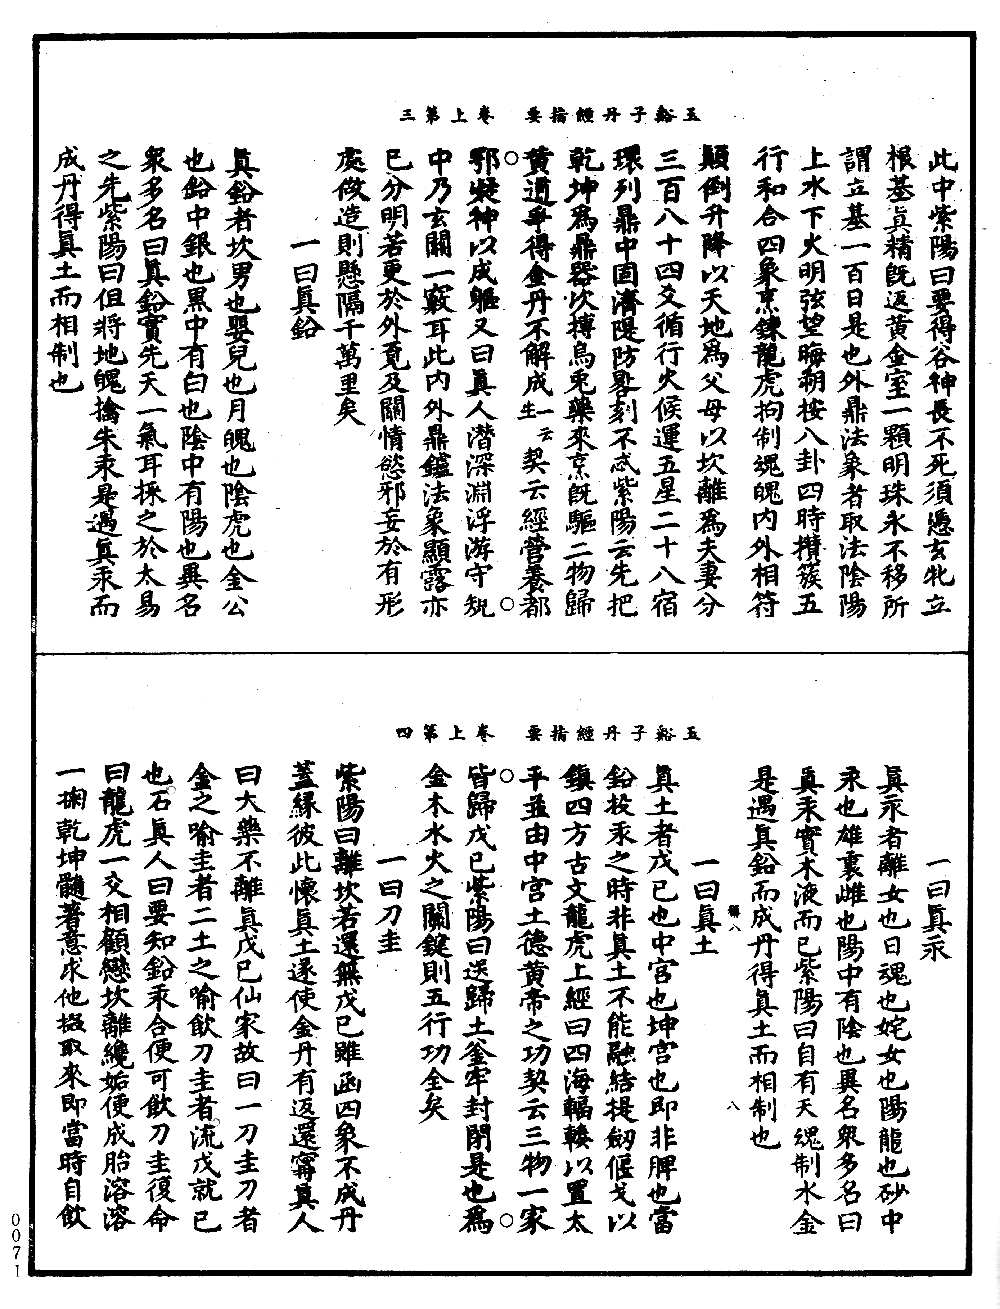 玉谿子丹經指要　卷上第三
此中紫陽曰要得谷神長不死須憑玄牝立
根基眞精旣返黃金室一顆明珠永不移所
謂立基一百日是也外鼎法象者取法陰陽
上水下火明弦望晦朔按八卦四時攢簇五
行和合四象烹鍊龍虎拘制魂魄內外相符
顚倒升降以天地爲父母以坎離爲夫妻分
三百八十四爻循行火候運五星二十八宿
環列鼎中固濟隄防晷刻不忒紫陽云先把
乾坤爲鼎器次摶烏兎藥來烹旣驅二物歸
黃道爭得金丹不解成一云生契云經營養鄞
鄂凝神以成軀又曰眞人潛深淵浮游守規
中乃玄關一竅耳此內外鼎鑪法象顯露亦
已分明若更於外覓及關情慾邪妄於有形
處做造則懸隔千萬里矣
一曰眞鉛
眞鉛者坎男也嬰兒也月魄也陰虎也金公
也鉛中銀也黑中有白也陰中有陽也異名
衆多名曰眞鉛實先天一氣耳採之於太易
之先紫陽曰但將地魄擒朱汞是遇眞汞而
成丹得眞土而相制也
玉谿子丹經指要　卷上第四
一曰眞汞
眞汞者離女也日魂也姹女也陽龍也砂中
汞也雄裏雌也陽中有陰也異名衆多名曰
眞汞實木液而已紫陽曰自有天魂制水金
是遇眞鉛而成丹得眞土而相制也
一曰眞土
眞土者戊已也中宮也坤宮也卽非脾也當
鉛投汞之時非眞土不能融結提劒偃戈以
鎭四方古文龍虎上經曰四海輻輳以置太
平並由中宮土德黃帝之功契云三物一家
皆歸戊已紫陽曰送歸土釜牢封閉是也爲
金木水火之關鍵則五行功全矣
一曰刀圭
紫陽曰離坎若還無戊已雖函四象不成丹
蓋緣彼此懷眞土遂使金丹有返還甯眞人
曰大藥不離眞戊已仙家故曰一刀圭刀者
金之喻圭者二土之喻飮刀圭者流戊就已
也石眞人曰要知鉛汞合便可飮刀圭復命
曰龍虎一交相顧戀坎離纔姤便成胎溶溶
一掬乾坤髓著意求他掇取來卽當時自飮
0071